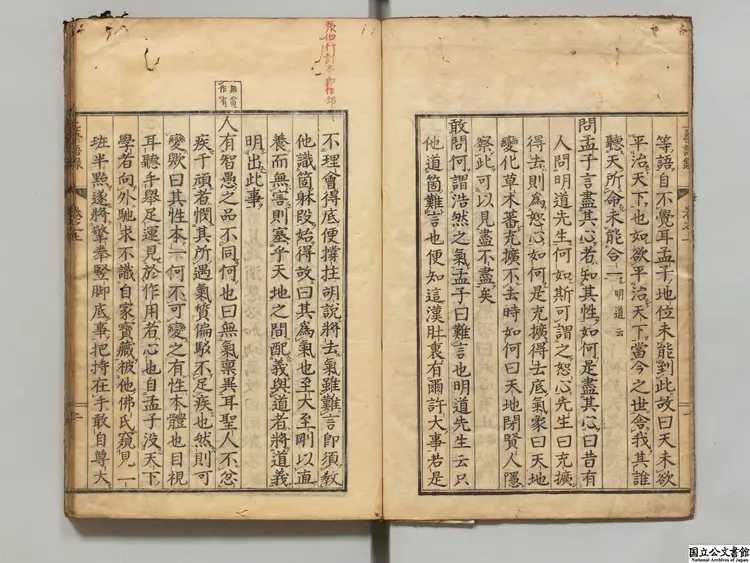 等語自不覺耳孟子地位未能到此故曰天未欲
平治天下也如欲平治天下當今之世舍我其誰
聽天所命未能合一明道云
問孟子言盡其心者知其性如何是盡其心曰昔有
人問明道先生何如斯可謂之恕心先生曰充擴
得去則為恕心如何是充擴得去底氣象曰天地
變化草木蕃充擴不去時如何曰天地閉賢人隱
察此可以見盡不盡矣
敢問何謂浩然之氣孟子曰難言也明道先生云只
他道箇難言也便知這漢肚裏有爾許大事若是
不理會得底便撐拄胡說將去氣雖難言即須教
他識箇體段始得故曰其爲氣也至大至剛以直
養而無害則塞乎天地之間配義與道者將道義
明出此事
人有智愚之品不同何也曰無氣稟異耳聖人不忿
疾于頑者憫其所遇氣質偏駁不足疾也然則可
變歟曰其性本一何不可變之有性本體也目視
耳聽手舉足運見於作用者心也自孟子沒天下
學者向外馳求不識自家寶藏被他佛氏窺見一
班半點遂將擎拳豎脚底事把持在手敢自尊大
無當作有
語錄
国立公文書館
National Archives of Japan